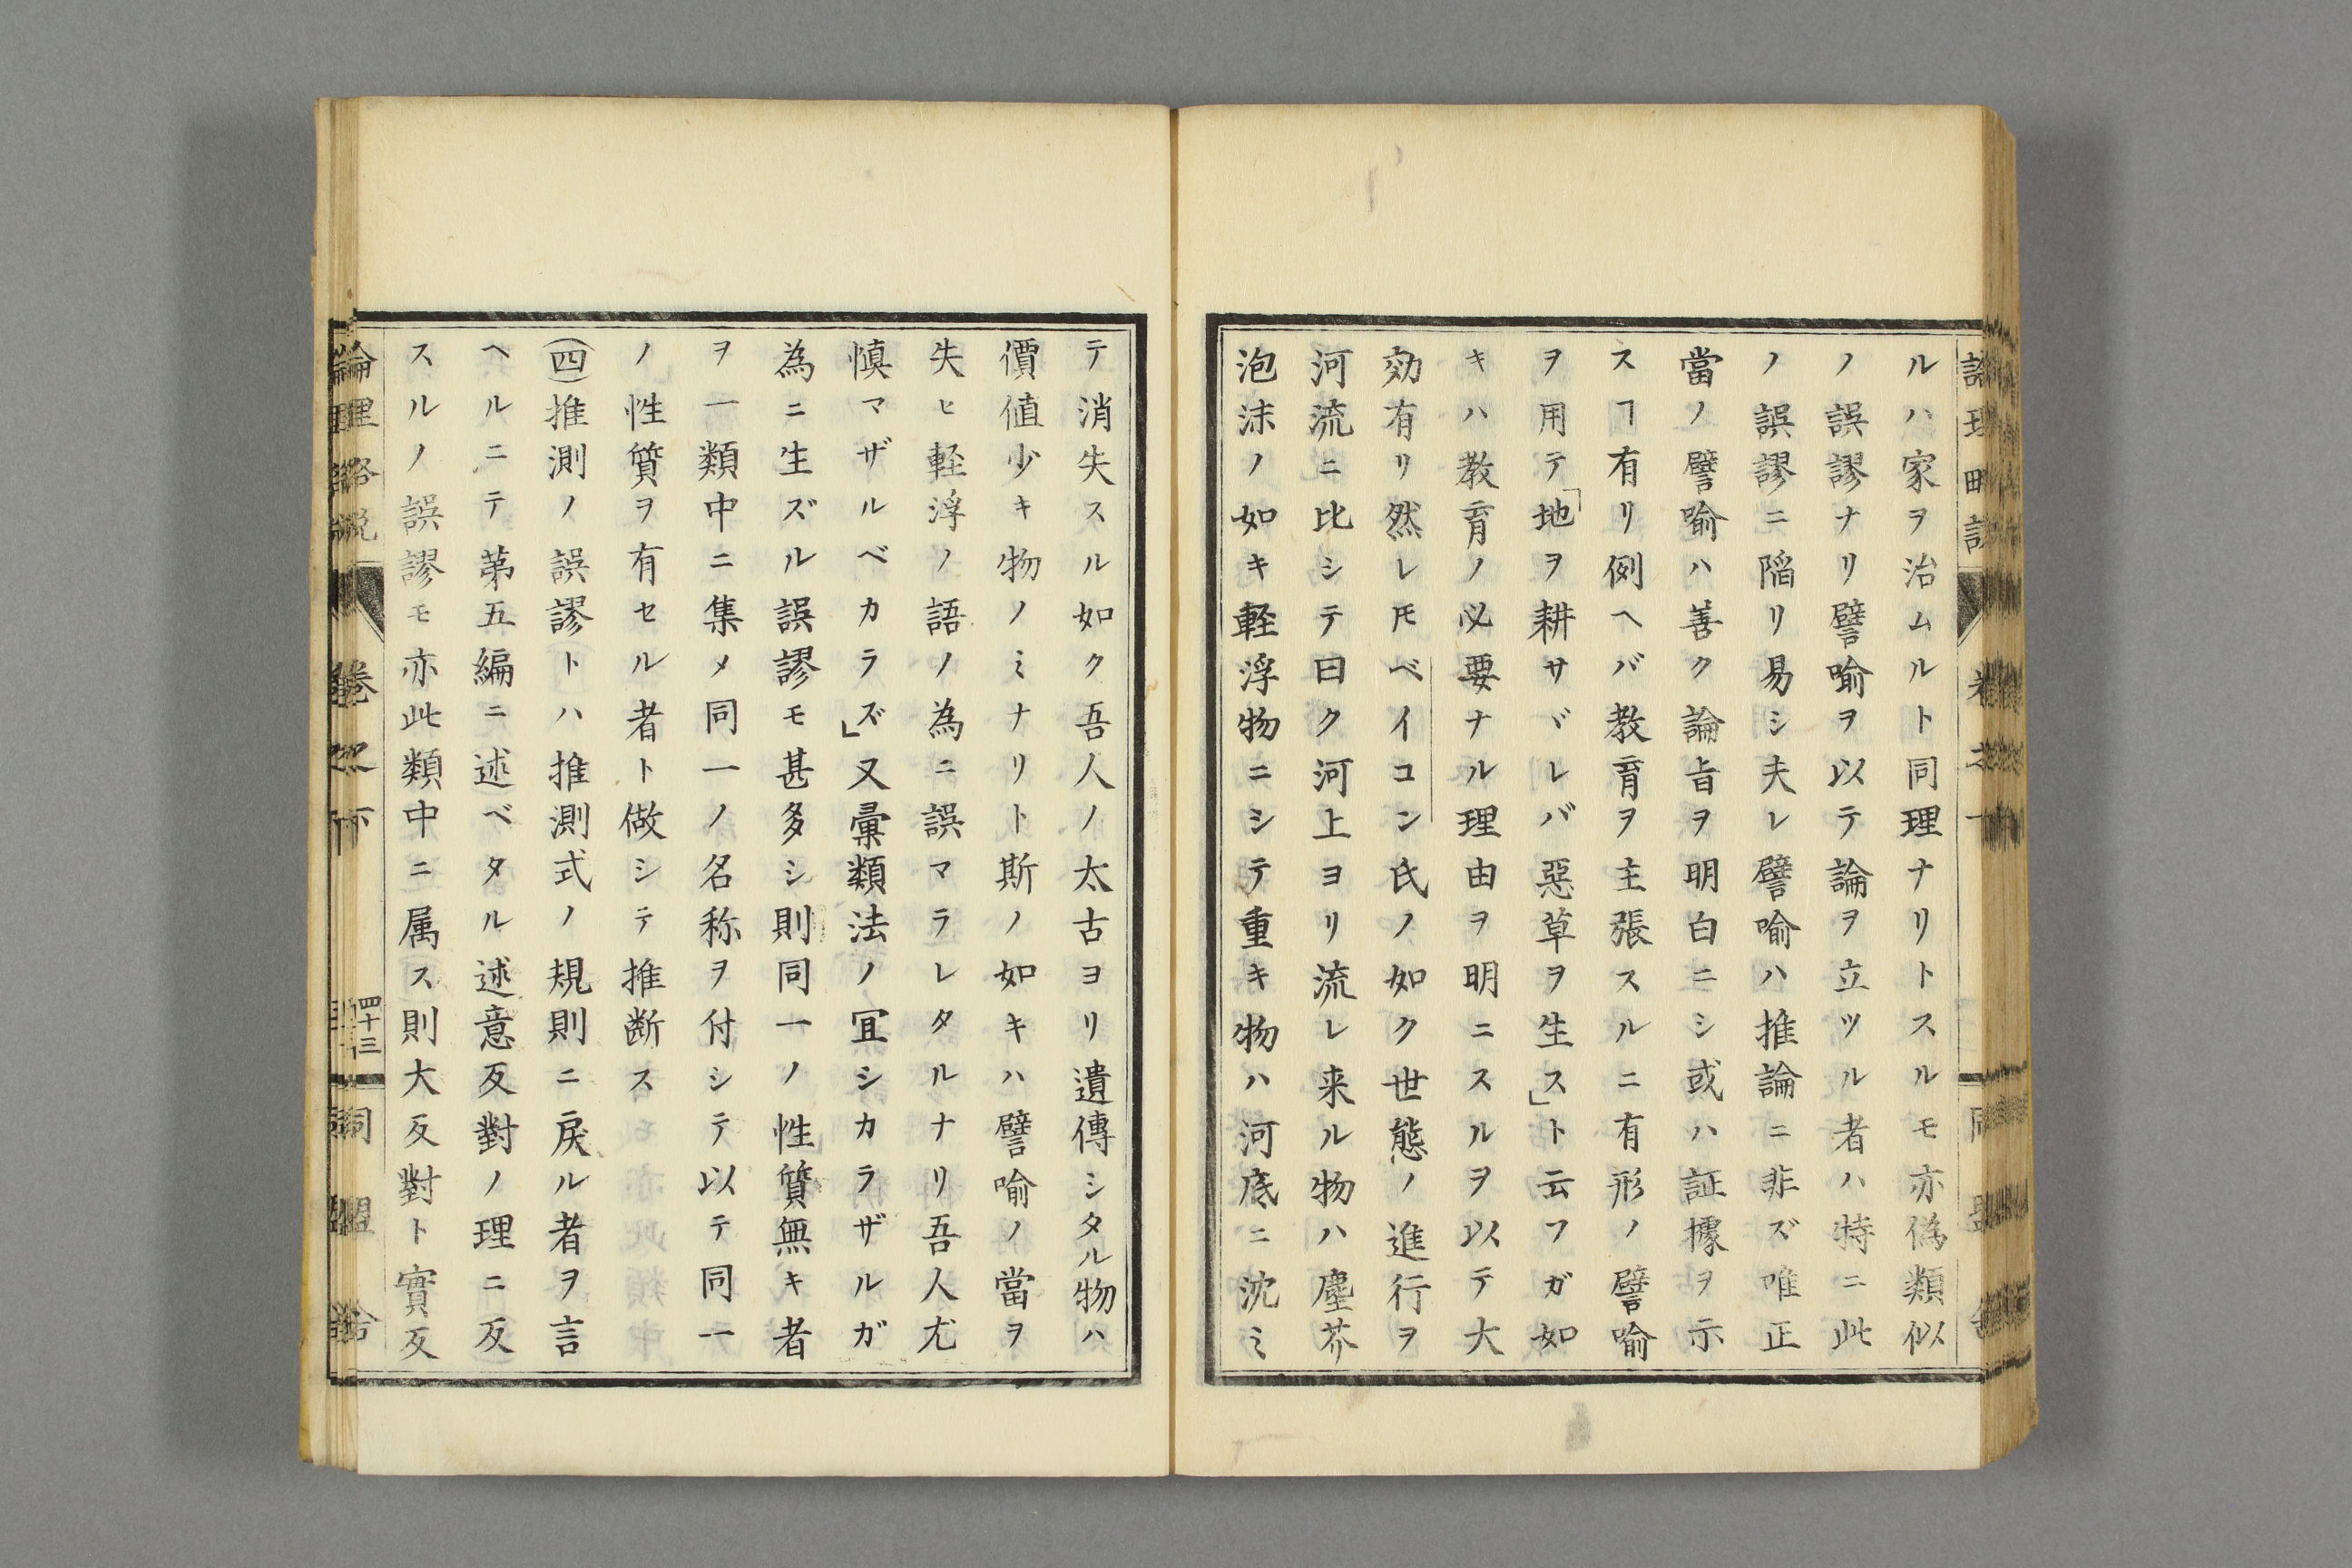 ルハ家ヲ治ムルト同理ナリトスルモ亦偽類似
ノ誤謬ナリ譬喻ヲ以テ論ヲ立ツル者ハ特ニ此
ノ誤謬ニ陷リ易シ夫レ譬喻ハ推論ニ非ズ唯正
當ノ譬喻ハ善ク論旨ヲ明白ニシ或ハ証據ヲ示
スヿ有リ例ヘバ教育ヲ主張スルニ有形ノ譬喻
ヲ用テ「地ヲ耕サヾレバ惡草ヲ生ス」ト云フガ如
キハ教育ノ必要ナル理由ヲ明ニスルヲ以テ大
効有リ然レ𪜈ベイコン氏ノ如ク世態ノ進行ヲ
河流ニ比シテ曰ク河上ヨリ流レ来ル物ハ塵芥
泡沫ノ如キ軽浮物ニシテ重キ物ハ河底ニ沈ミ
テ消失スル如ク吾人ノ太古ヨリ遺傳シタル物ハ
價値少キ物ノミナリト斯ノ如キハ譬喻ノ當ヲ
失ヒ軽浮ノ語ノ為ニ誤マラレタルナリ吾人尤
慎マザルベカラズ」又彙類法ノ宜シカラザルガ
為ニ生ズル誤謬モ甚多シ則同一ノ性質無キ者
ヲ一類中ニ集メ同一ノ名称ヲ付シテ以テ同一
ノ性質ヲ有セル者ト做シテ推断ス
(四)推測ノ誤謬トハ推測式ノ規則ニ戾ル者ヲ言
ヘルニテ第五編ニ述ベタル述意反對ノ理ニ反
スルノ誤謬モ亦此類中ニ属ス則大反對ト實反
論理略説 卷之下 四十三 同盟舎